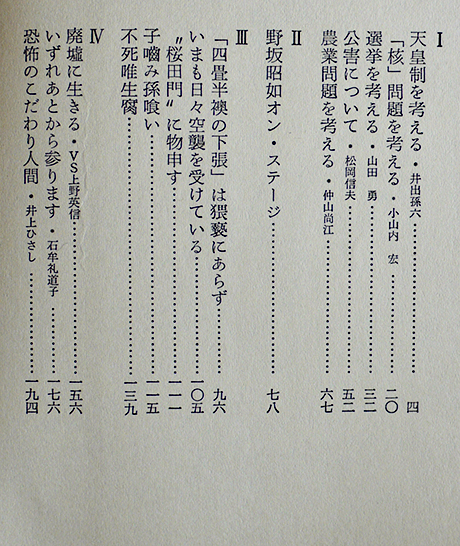 Ⅰ
天皇制を考える・井出孫六……………四
「核」問題を考える・小山内 宏……………二〇
選挙を考える・山田 勇……………三二
公害について・松岡信夫……………五二
農業問題を考える・仲山尚江……………六七
Ⅱ
野坂昭如オン・ステージ……………七八
Ⅲ
「四畳半襖の下張」は猥褻にあらず……………九六
いまも日々空襲を受けている……………一〇五
〝桜田門〟に物申す……………一一一
子嚙み孫喰い……………一一五
不死唯生腐……………一三九
Ⅳ
廃墟に生きる・VS上野英信……………一五六
いずれあとから参ります・石牟礼道子……………一七六
恐怖のこだわり人間・井上ひさし……………一九四